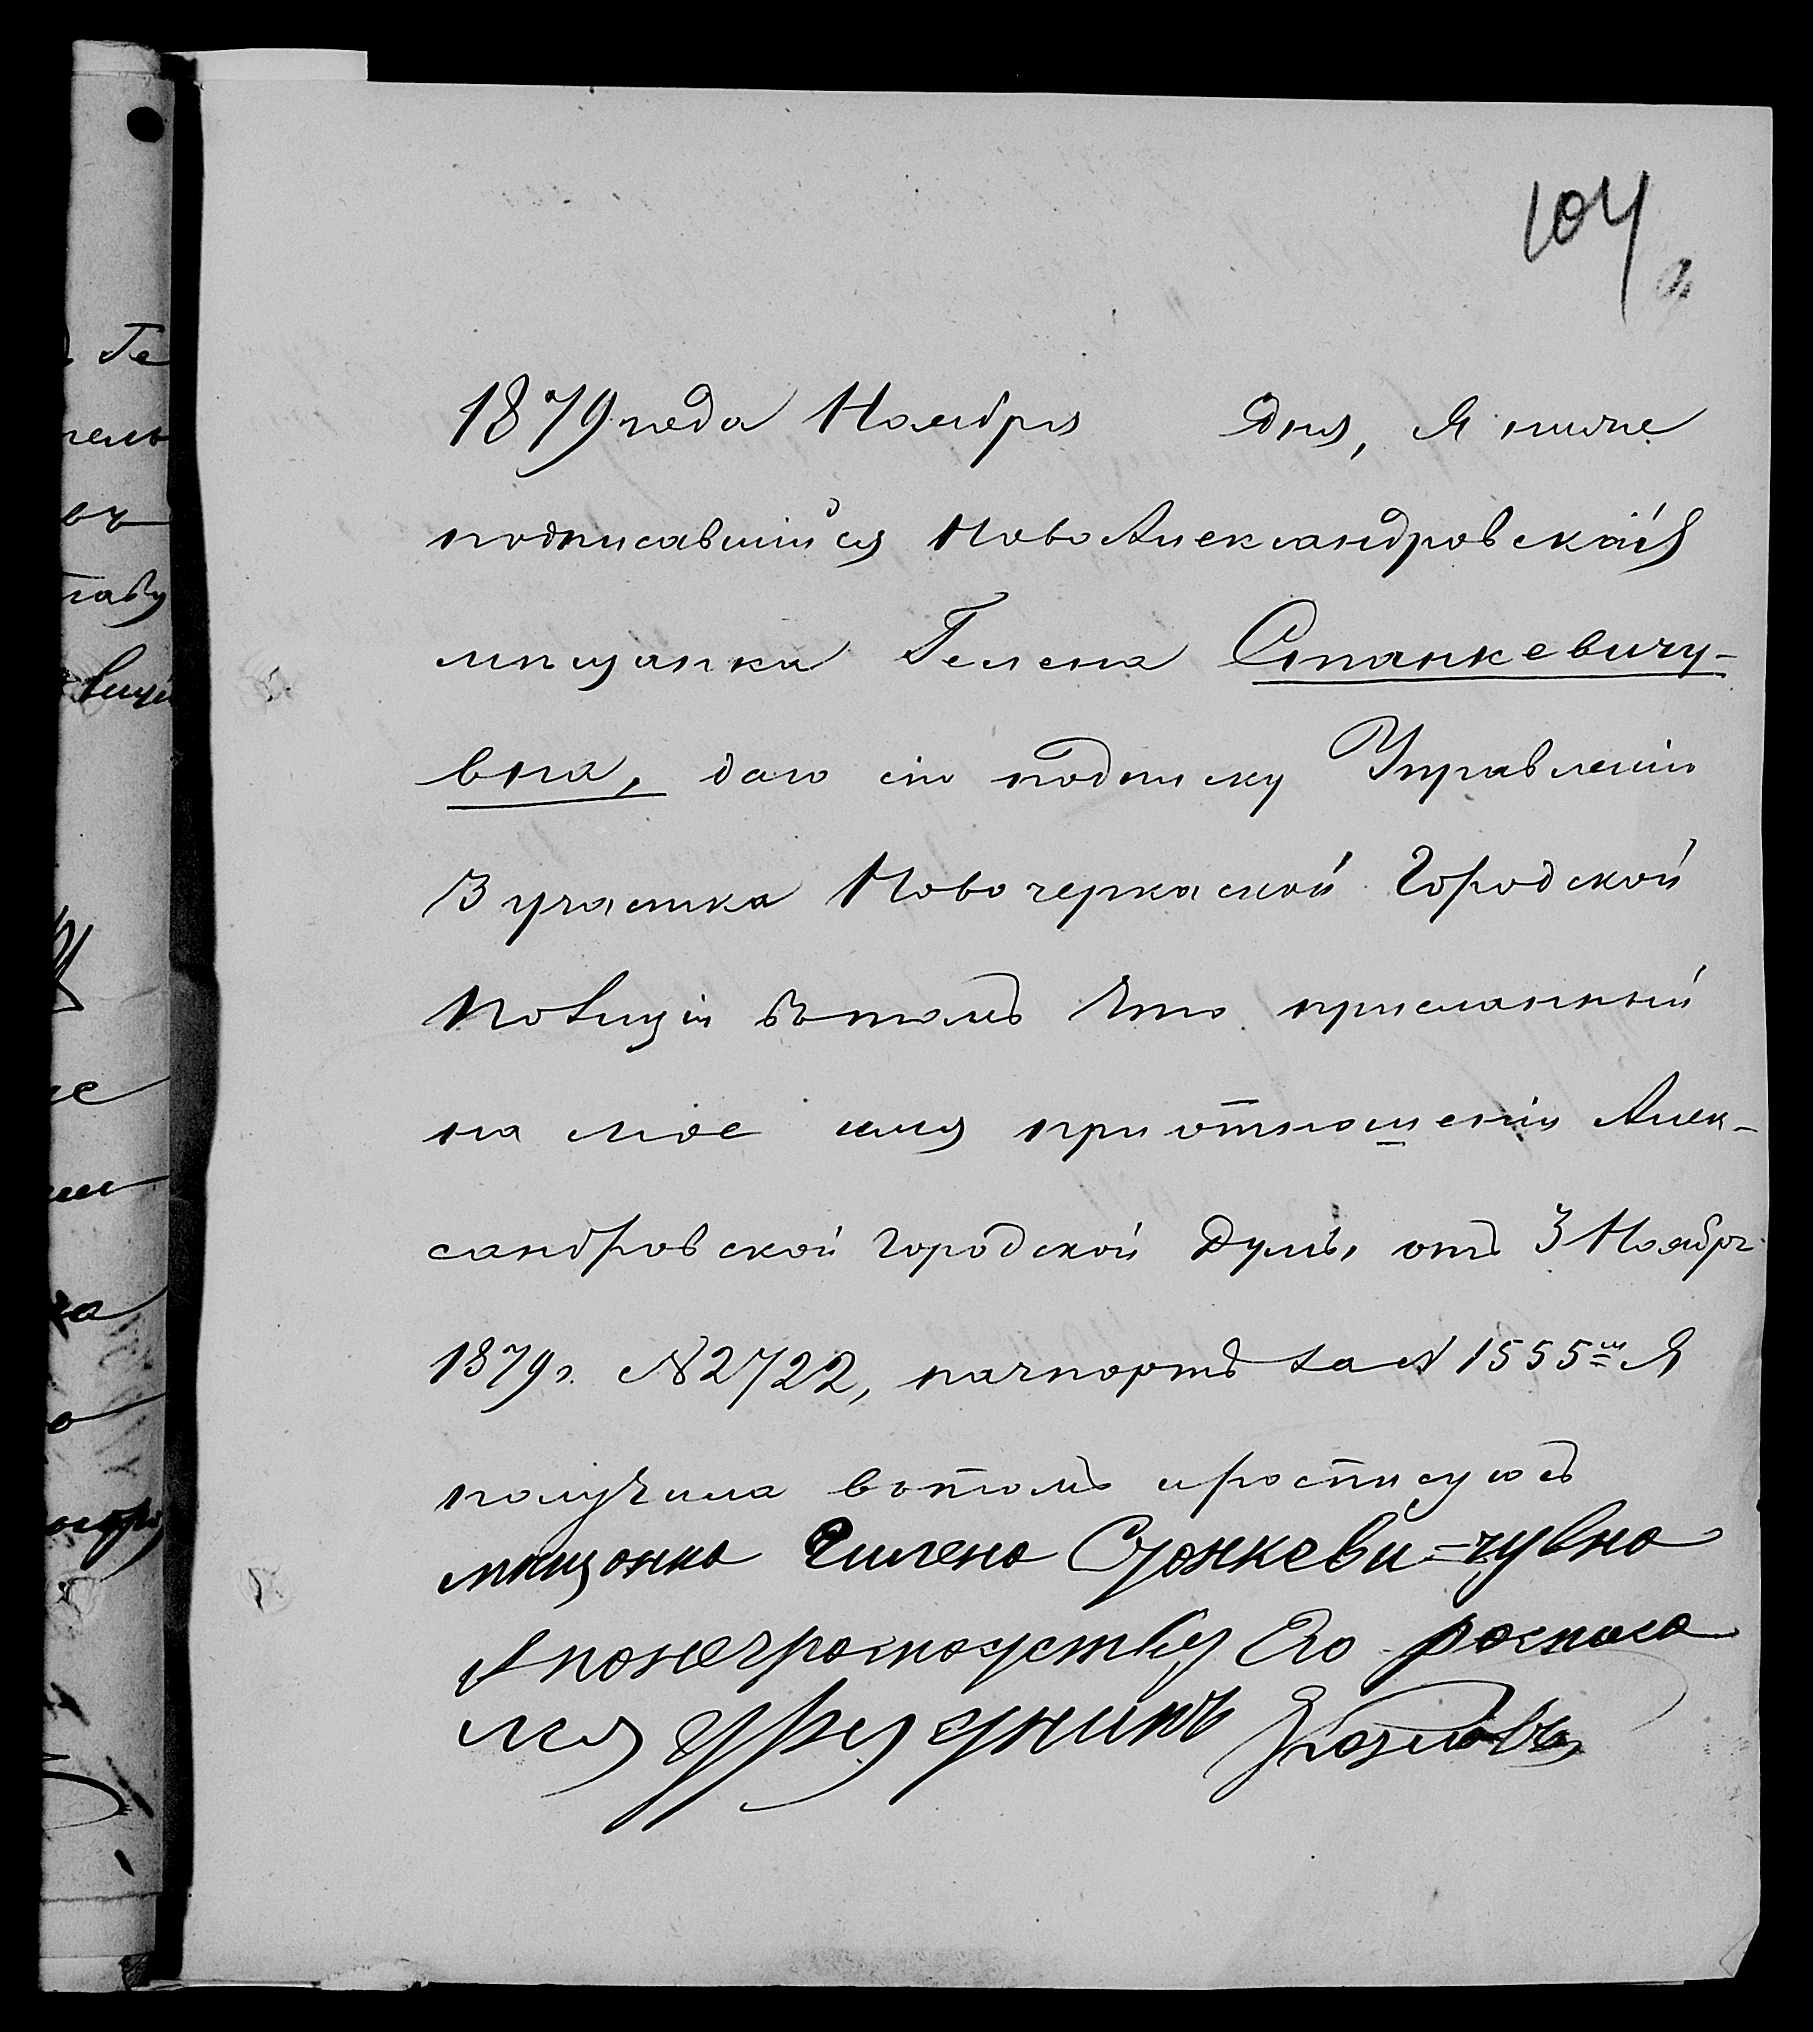 104
1879 года Ноября дня, Я ниже
подписавшійся НовоАлександровская
мѣщанка Гелена Станкевичу-
вна, даю сію подписку Управленію
3 участка Новочеркаской Городской
Полиціи вътомъ что присланный
на мое имя приотношеніи Алек-
сандровской городской Думы, отъ 3 Ноябр.
1879 г. № 2722, пачпортъ за № 1555 ш Я
получила вътомъ иростисуюсь
мищанка Гилена Станкеви=чувна
Апонеграмотуству Его росписа
лся Урядникъ Козловъ